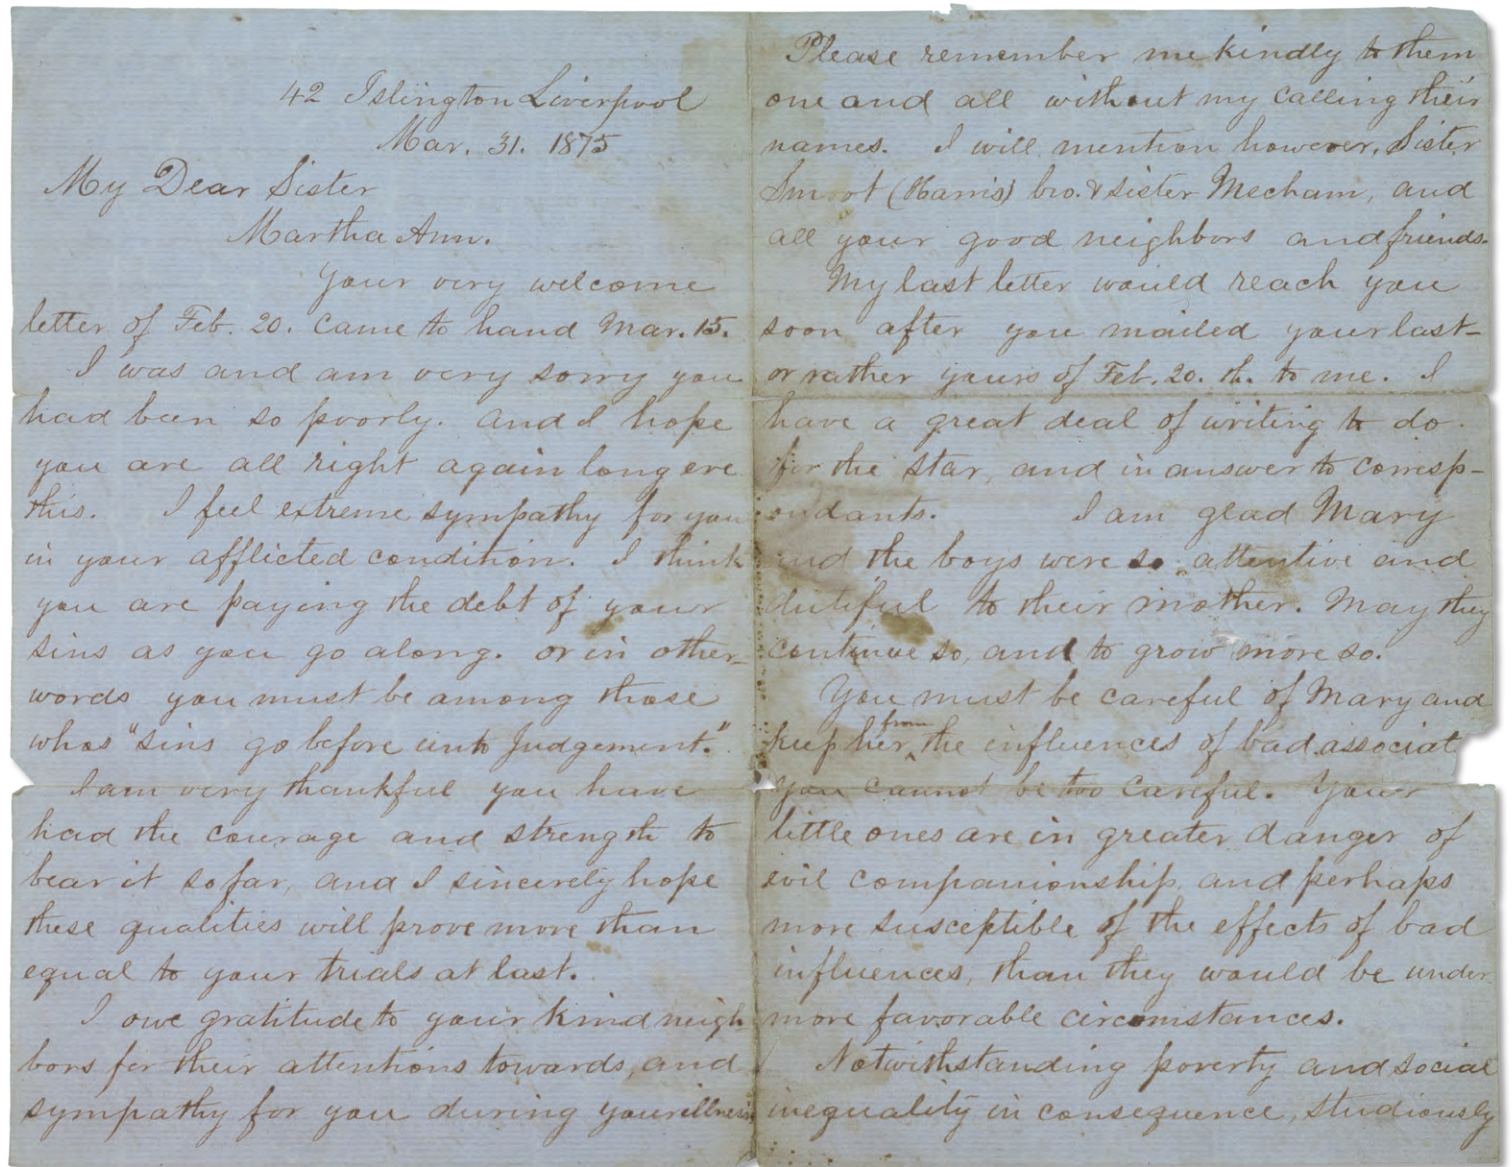 42 Islington Liverpool
Mar. 31. 1875
My Dear Sister
Martha Ann.
Your very welcome
letter of Feb. 20. came to hand Mar. 15.
I was and am very sorry you
had been so poorly. and I hope
you are all right again long ere
this. I feel extreme sympathy for you
in your afflicted condition. I think
you are paying the debt of your
sins as you go along. or in other-
words you must be among those
whos "sins go before unto Judgement."
I am very thankful you have
had the courage and strength to
bear it so far, and I sincerely hope
these qualities will prove more than
equal to your trials at last.
I owe gratitude to your kind neigh
bors for their attentions towards, and
sympathy for you during your illness
Please remember me kindly to them
one and all without my calling their
names. I will mention however, Sister
Smoot (Harris) bro. & sister Mecham, and
all your good neighbors and friends.
My last letter would reach you
soon after you mailed your last-
or rather yours of Feb. 20. th. to me. I
have a great deal of writing to do.
for the star, and in answer to corresp-
ondants. I am glad Mary
and the boys were so attentive and
dutiful to their mother. May they
continue so, and to grow more so.
You must be careful of Mary and
keep her from the influences of bad associat
you cannot be too careful. Your
little ones are in greater danger of
evil companionship, and perhaps
more susceptible of the effects of bad
influences, than they would be under
more favorable circomstances.
Notwithstanding poverty and social
inequality in consequence, studiously